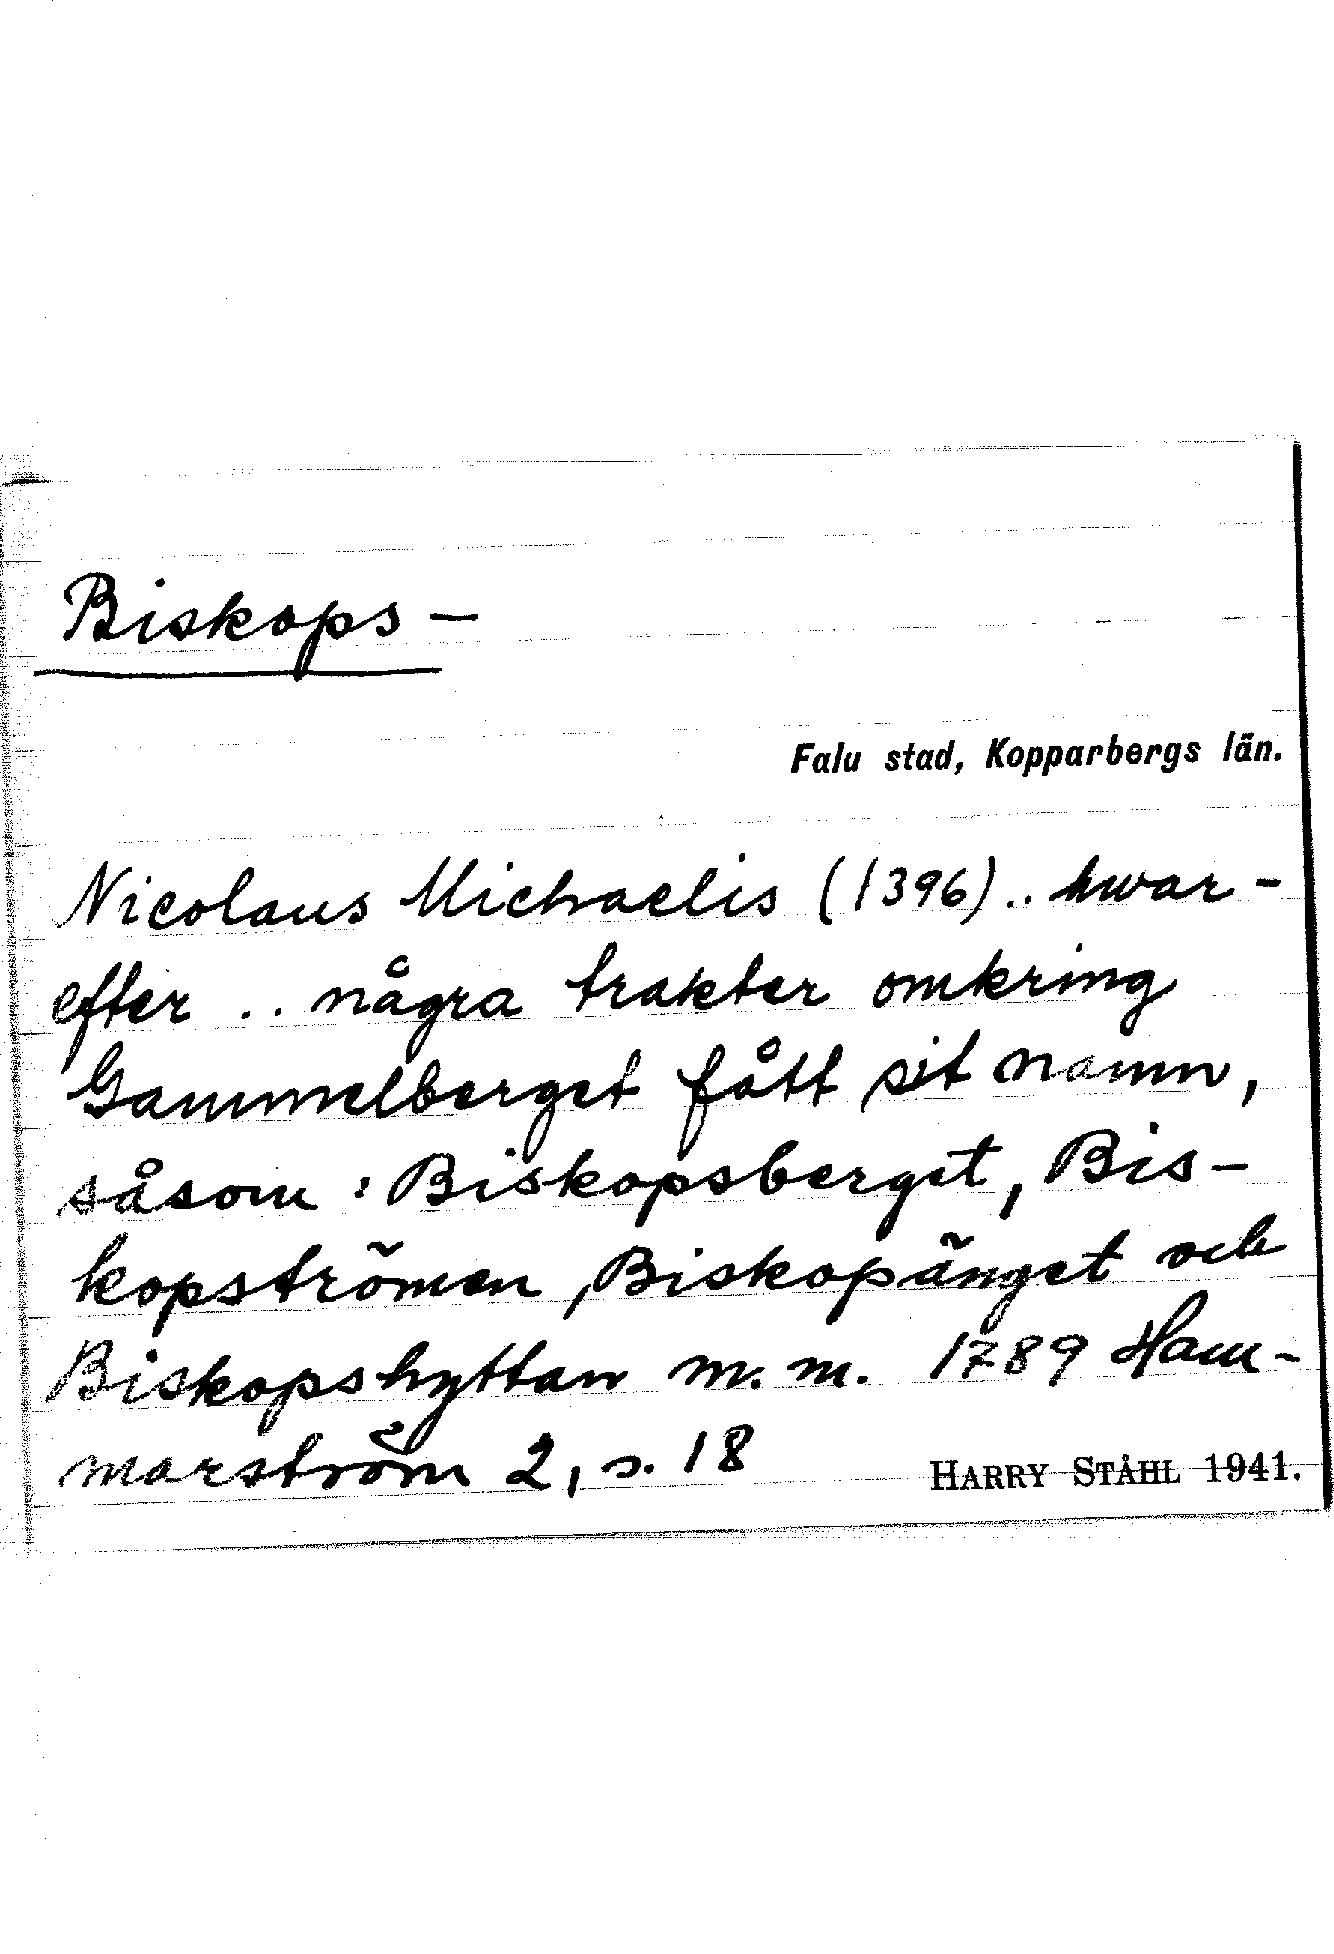 Biskops -
Falu stad, Kopparbergs län.
Nicolaus Michaelis (1396) .. hwar-
efter .. några trakter omkring
Gammelberget fått sit namn,
såsom : Biskopsberget, Bis-
kopströmen, Biskopänget och
Biskopshyttan m. m. 1789 Ham-
marström 2, s. 18
HARRY STÅHL 1941.